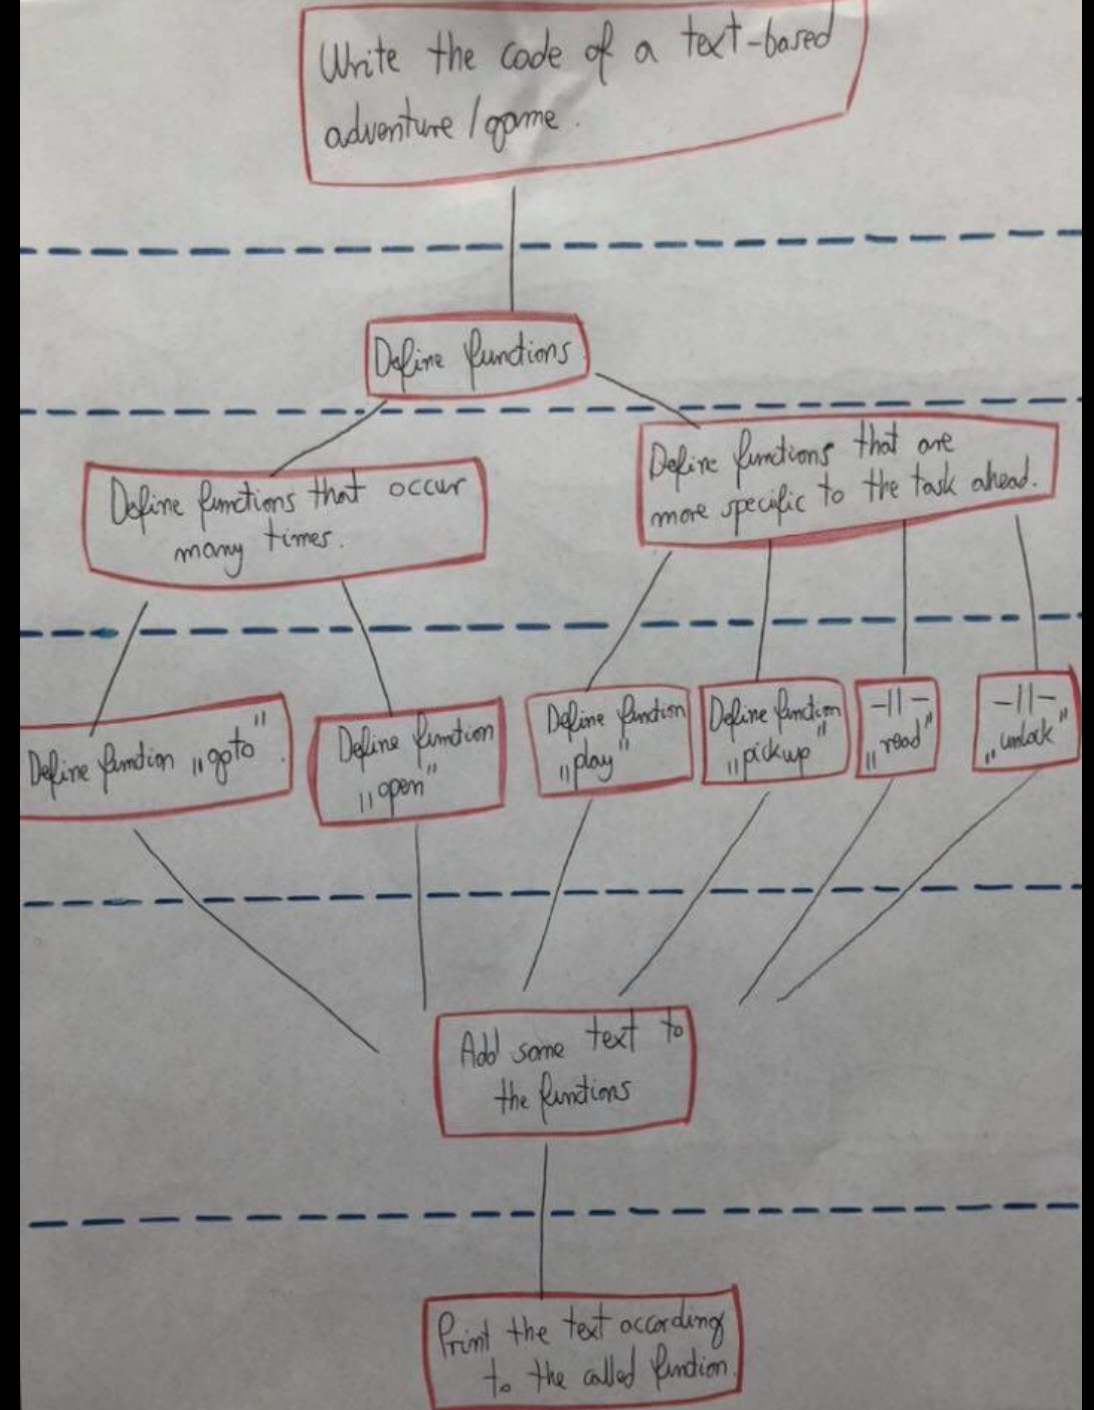 Write the code of a text-based
adventure/game.
Define functions
Define functions that occur
many times.
Define functions that are
more specific to the task ahead.
Define function „goto".
Define function
„open"
Define function
„play"
Define function
„pickup"
-||-
„read"
-||-
„unlock"
Add some text to
the functions
Print the text according
to the called function.